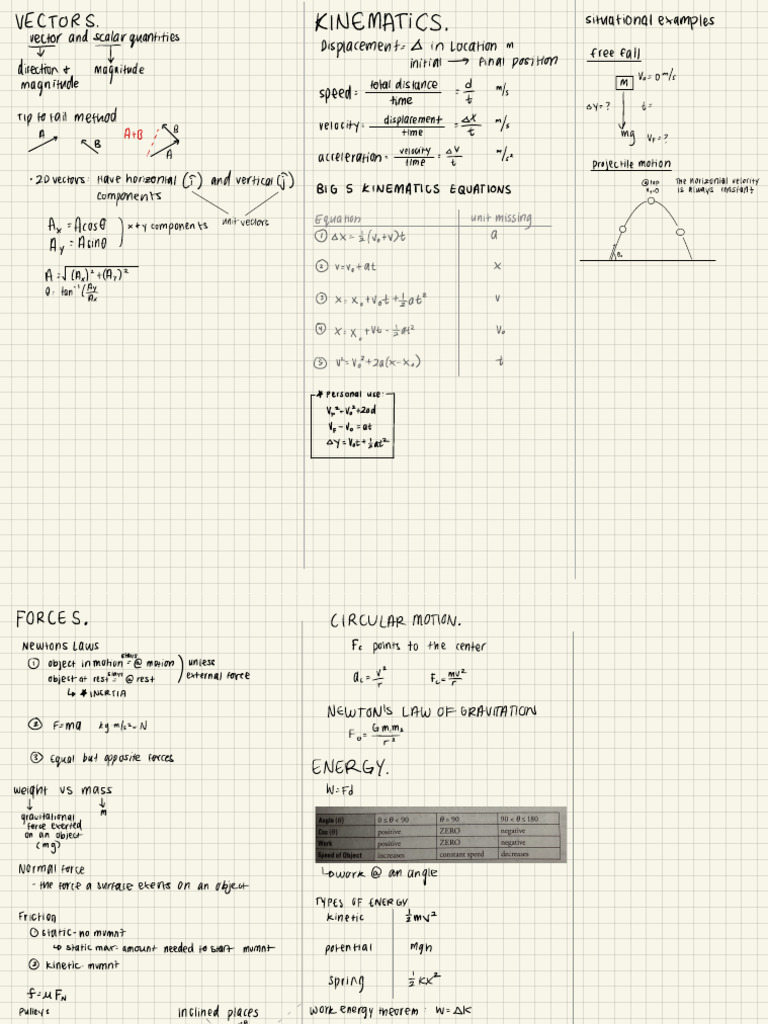 VECTORS.
vector and scalar quantities
direction + magnitude
magnitude
Tip to tail method
A
B
A+B
B
A
• 2D vectors: Have horizontal (î) and vertical (ĵ)
components
unit vectors
Ax = Acosθ
Ay = Asinθ
x+y components
A = √(Ax)² + (Ay)²
θ = tan⁻¹(Ay/Ax
KINEMATICS.
Displacement = Δ in Location m
initial → final position
speed = total distance / time = d/t m/s
velocity = displacement / time = Δx/t m/s
acceleration = velocity / time = Δv/t m/s²
BIG 5 KINEMATICS EQUATIONS
Equation unit missing
① Δx = ½(v₀+v)t a
② v = v₀ + at x
③ x = x₀ + v₀t + ½at² v
④ x = x₀ + vt - ½at² v₀
⑤ v² = v₀² + 2a(x-x₀) t
* Personal use:
VF² - V₀² + 2ad
VF - V₀ = at
ΔY = V₀t + ½at²
situational examples
free fall
M V₀ = 0 m/s
ΔY = ? t =
mg VF = ?
projectile motion
@ top
The horizontal velocity
is always constant
FORCES.
Newtons Laws
① object in motion stays @ motion
object at rest stays @ rest
unless
external force
↳ * INERTIA
② F=ma kg m/s² = N
③ Equal but opposite forces
weight vs mass
gravitational
force exerted
on an object
(mg)
m
Normal force
- the force a surface exerts on an object
Friction
① static - no mvmnt
↳ static max - amount needed to start mvmnt
② kinetic - mvmnt
f = μFN
Pulleys
inclined places
CIRCULAR MOTION.
Fc points to the center
ac = v²/r Fc = mv²/r
NEWTON'S LAW OF GRAVITATION
FG = Gm₁m₂/r²
ENERGY.
W = Fd
Angle (θ) 0 ≤ θ < 90 θ = 90 90 < θ ≤ 180
Cos (θ) positive ZERO negative
Work positive ZERO negative
Speed of Object increases constant speed decreases
↳ work @ an angle
TYPES OF ENERGY
kinetic ½mv²
potential Mgh
spring ½kx²
work energy theorem: W = ΔK